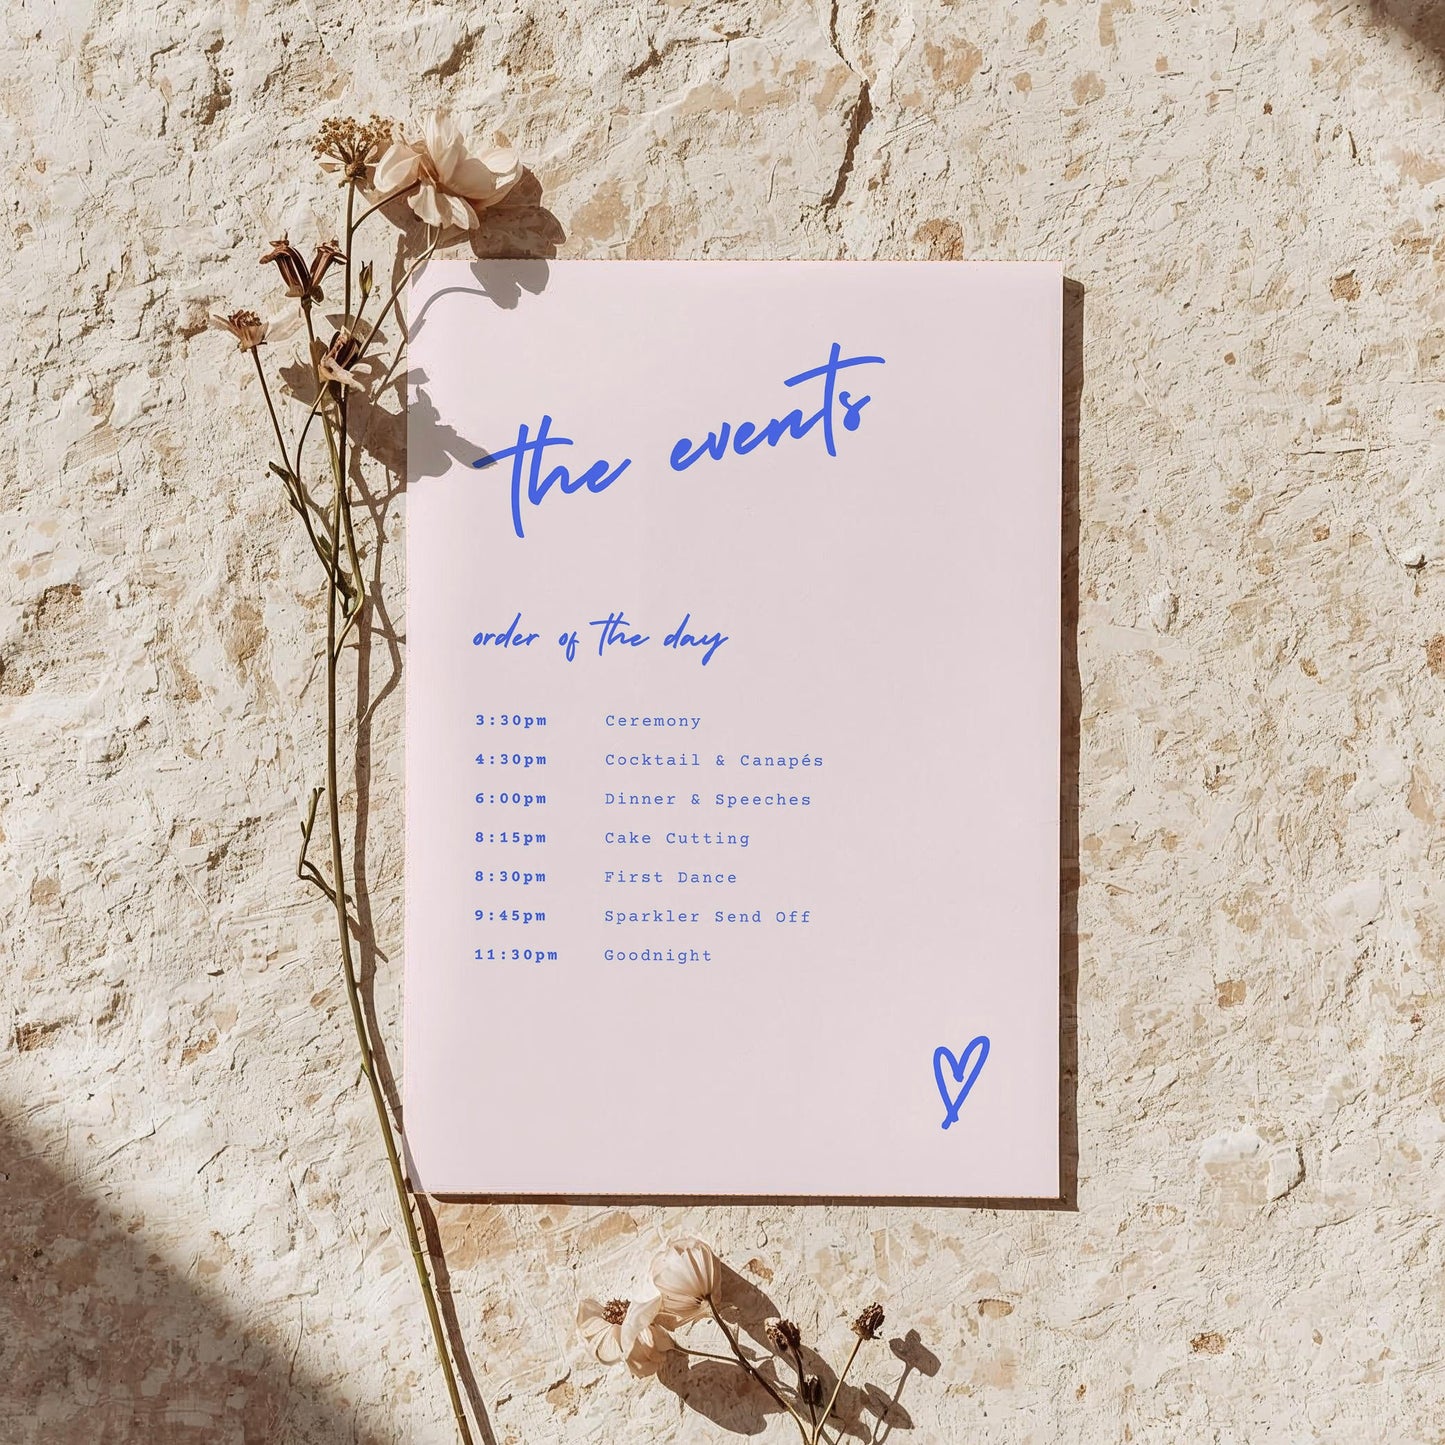 the events
order of the day
3:30pm Ceremony
4:30pm Cocktail & Canapés
6:00pm Dinner & Speeches
8:15pm Cake Cutting
8:30pm First Dance
9:45pm Sparkler Send Off
11:30pm Goodnight